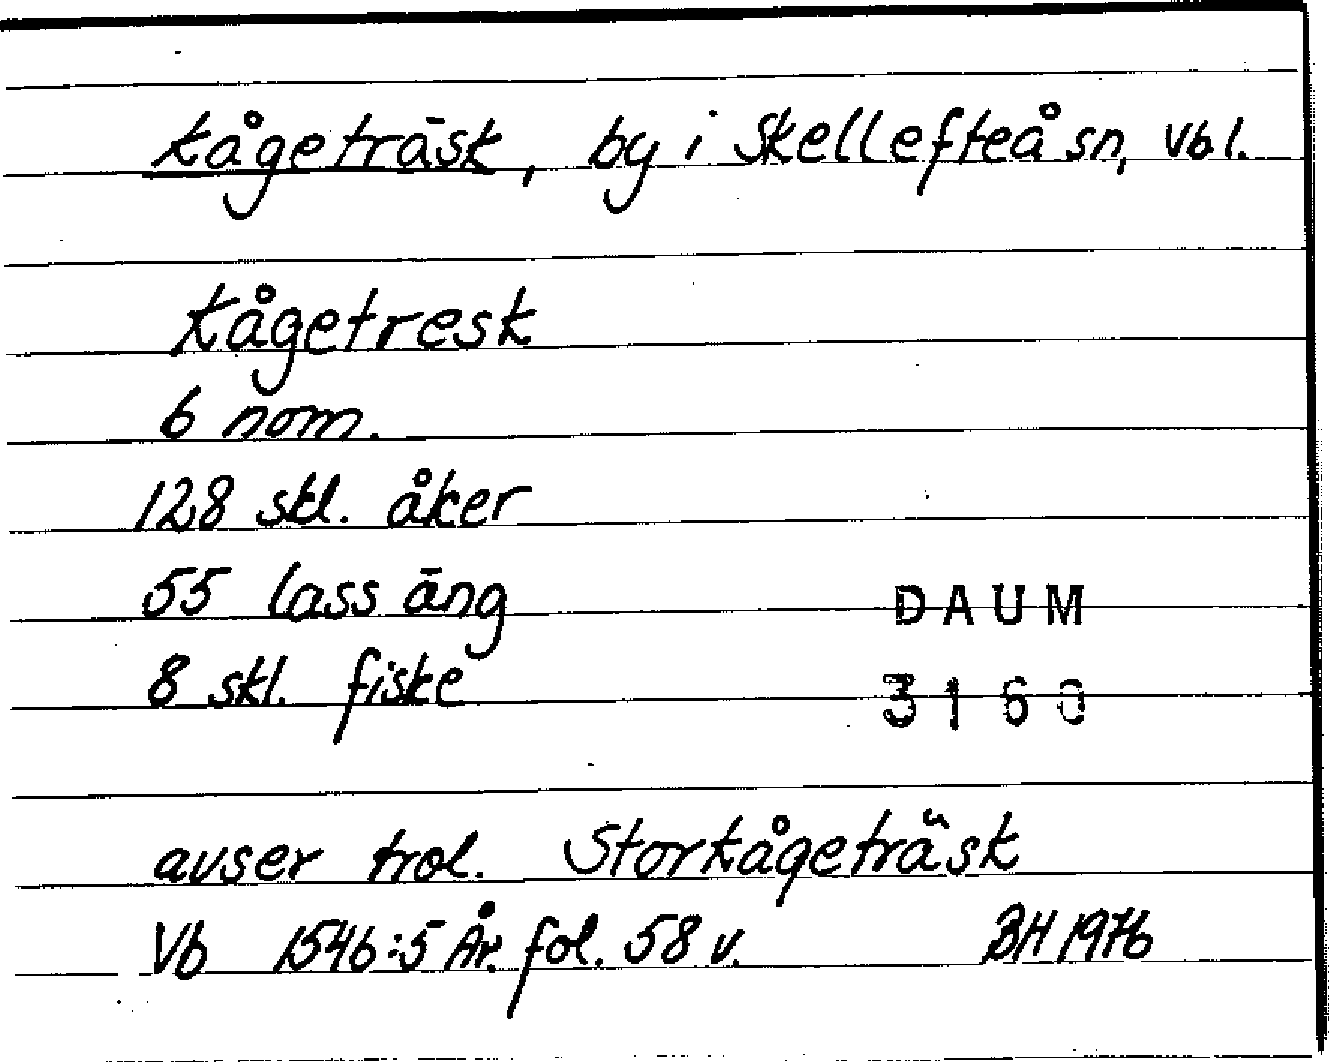 Kågeträsk, by i Skellefteå sn, Vbl.
Kågetresk
6 nom.
128 skl. åker
55 lass äng
8 skl. fiske
DAUM
3160
avser trol. Storkågeträsk
Vb 1546:5 År. fol. 58 v. BH 1976